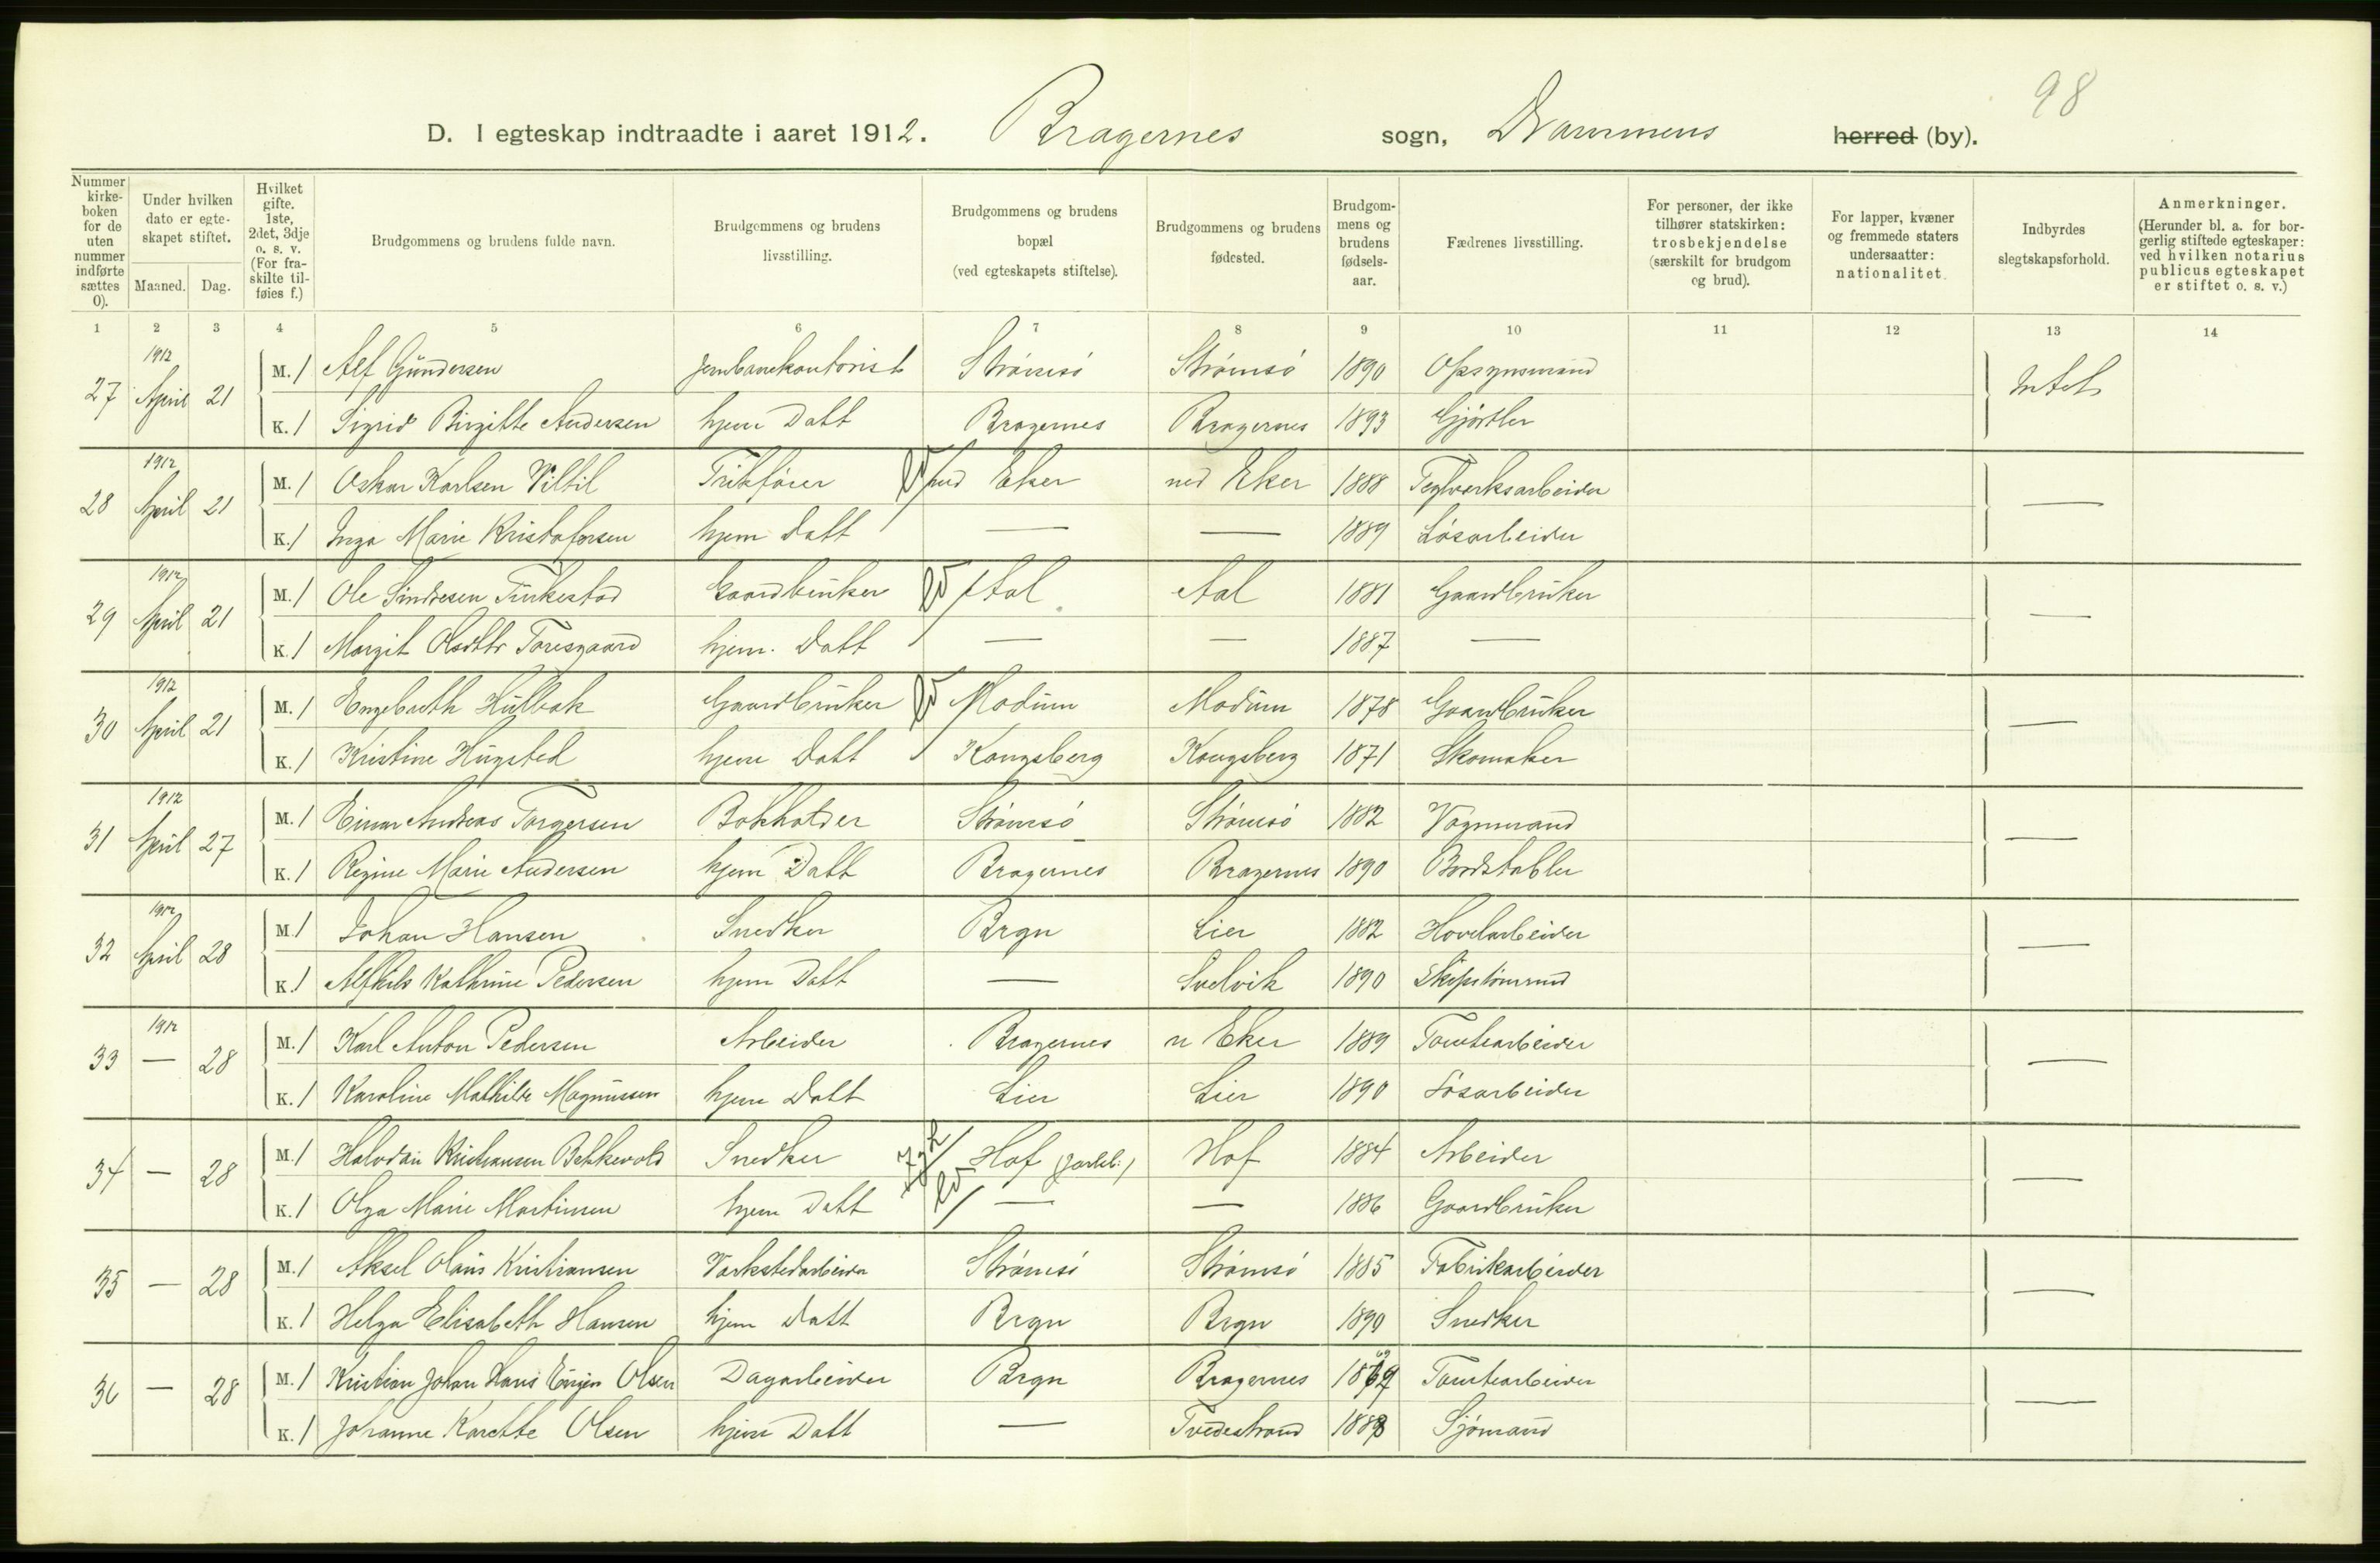 98
D. I egteskap indtraadte i aaret 1912. Bragernes sogn, Drammens herred (by).
Nummer kirke-boken for de uten nummer indførte sættes 0). | Under hvilken dato er egte-skapet stiftet. Maaned. Dag. | Hvilket gifte. 1ste, 2det, 3dje o. s. v. (For fra-skilte til-føies f.) | Brudgommens og brudens fulde navn. | Brudgommens og brudens livsstilling. | Brudgommens og brudens bopæl (ved egteskapets stiftelse). | Brudgommens og brudens fødested. | Brudgom-mens og brudens fødsels-aar. | Fædrenes livsstilling. | For personer, der ikke tilhører statskirken: trosbekjendelse (særskilt for brudgom og brud). | For lapper, kvæner og fremmede staters undersaatter: nationalitet. | Indbyrdes slegtskapsforhold. | Anmerkninger. (Herunder bl. a. for bor-gerlig stiftede egteskaper: ved hvilken notarius publicus egteskapet er stiftet o. s. v.)
1 2 3 4 5 6 7 8 9 10 11 12 13 14
27 1912 April 21 M. 1 Alf Gundersen Jernbanekontorist Strømsö Strømsö 1890 Opsynsmand Intet
K. 1 Sigrid Birgitte Andersen hjem Datt Bragernes Bragernes 1893 Gjörtler
28 1912 April 21 M. 1 Oskar Karlsen Viltil ned Eker ned Eker 1888 Teglverksarbeider —
K. 1 Inga Marie Kristofersen hjem Datt — — 1889 Løsarbeider
29 1912 April 21 M. 1 Ole Sindresen Gaardbruker Aal Aal 1881 Gaardbruker —
K. 1 Margit Olsdttr Toresgaard hjem. Datt — — 1887 —
30 1912 April 21 M. 1 Engebreth Hulbak Gaardbruker Modum Modum 1878 Gaardbruker —
K. 1 Kristine Hugsted hjem Datt Kongsberg Kongsberg 1871 Skomaker
31 1912 April 27 M. 1 Einar Andreas Torgersen Bokholder Strømsö Strømsö 1882 Vognmand —
K. 1 Regine Marie Andersen hjem Datt Bragernes Bragernes 1890 Bordstabler
32 1912 April 28 M. 1 Johan Hansen Snedker Brgn Lier 1882 Hovelarbeider —
K. 1 Alfhild Kathrine Pedersen hjem Datt — Svelvik 1890 Skipstømmand
33 1912 — 28 M. 1 Karl Anton Pedersen Arbeider Bragernes n Eker 1889 Tomtearbeider —
K. 1 Karoline Mathilde Magnussen hjem Datt Lier Lier 1890 Løsarbeider
34 — 28 M. 1 Halvdan Kristiansen Bekkevold Snedker Hof (Jarlsb.) Hof 1884 Arbeider —
K. 1 Olga Marie Martinsen hjem Datt — — 1886 Gaardbruker
35 — 28 M. 1 Aksel Olaus Kristiansen Verkstedarbeider Strømsö Strømsö 1885 Fabrikarbeider —
K. 1 Helga Elisabeth Hansen hjem Datt Brgn Brgn 1890 Snedker
36 — 28 M. 1 Kristian Johan Hans Eugen Olsen Dagarbeider Brgn Bragernes Tomtearbeider —
K. 1 Johanne Karette Olsen hjem Datt — Tvedestrand 1888 Sjømand